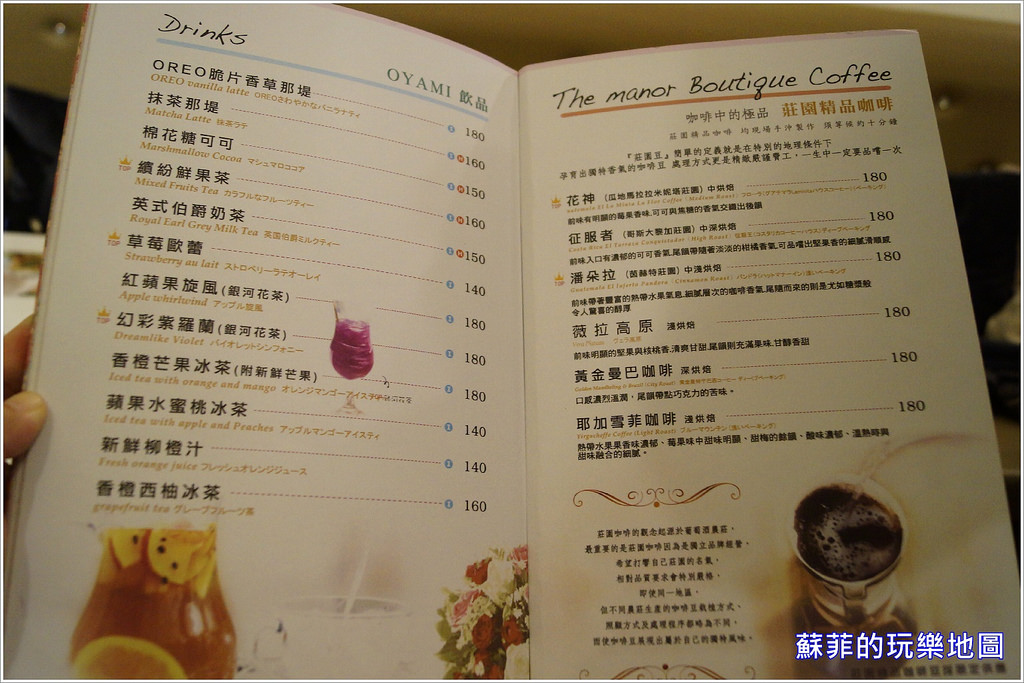 Drinks
OYAMI 飲品
OREO脆片香草那堤 180
OREO vanilla latte OREOさわやかなバニラナティ
抹茶那堤 160
Matcha Latte 抹茶ラテ
棉花糖可可 150
Marshmallow Cocoa マシュマロココア
TOP 繽紛鮮果茶 160
Mixed Fruits Tea カラフルなフルーツティー
英式伯爵奶茶 150
Royal Earl Grey Milk Tea 英国伯爵ミルクティー
TOP 草莓歐蕾 140
Strawberry au lait ストロベリーラテオーレイ
紅蘋果旋風(銀河花茶) 180
Apple whirlwind アップル旋風
TOP 幻彩紫羅蘭(銀河花茶) 180
Dreamlike Violet バイオレットシンフォニー
香橙芒果冰茶(附新鮮芒果) 180
Iced tea with orange and mango オレンジマンゴーアイスティ
蘋果水蜜桃冰茶 140
Iced tea with apple and Peaches アップルマンゴーアイスティ
新鮮柳橙汁 140
Fresh orange juice フレッシュオレンジジュース
香橙西柚冰茶 160
grapefruit tea グレープフルーツ茶
The manor Boutique Coffee
咖啡中的極品 莊園精品咖啡
莊園精品咖啡 均現場手沖製作 須等候約十分鐘
『莊園豆』簡單的定義就是在特別的地理條件下
孕育出獨特香氣的咖啡豆 處理方式更是精緻嚴謹費工,一生中一定要品嚐一次
TOP 花神 (瓜地馬拉拉米妮塔莊園) 中烘焙 180
前味有明顯的莓果香味,可可與焦糖的香氣交織出後韻
征服者 (哥斯大黎加莊園) 中深烘焙 180
前味入口有濃郁的可可香氣,尾韻帶隨著淡淡的柑橘香氣,可品嚐出堅果香的細膩滑順感
TOP 潘朵拉 (茵赫特莊園) 中淺烘焙 180
前味帶著豐富的熱帶水果氣息,細膩層次的咖啡香氣,尾隨而來的則是尤如糖漿般
令人驚喜的醇厚
薇拉高原 淺烘焙 180
前味明顯的堅果與核桃香,清爽甘甜,尾韻則充滿果味,甘醇香甜
黃金曼巴咖啡 深烘焙 180
口感濃烈溫潤,尾韻帶點巧克力的苦味。
耶加雪菲咖啡 淺烘焙 180
Yirgacheffe Coffee (Light Roast)
熱帶水果果香味濃郁、莓果味中甜味明顯、甜梅的餘韻、酸味濃郁、溫熱時與
甜味融合的細膩。
莊園咖啡的觀念起源於葡萄酒農莊,
最重要的是莊園咖啡因為是獨立品牌經營,
希望打響自己莊園的名氣,
相對品質要求會特別嚴格,
即使同一地區,
但不同農莊生產的咖啡豆栽植方式、
照顧方式及處理程序都略為不同,
而使咖啡豆展現出屬於自己的獨特風味。
蘇菲的玩樂地圖